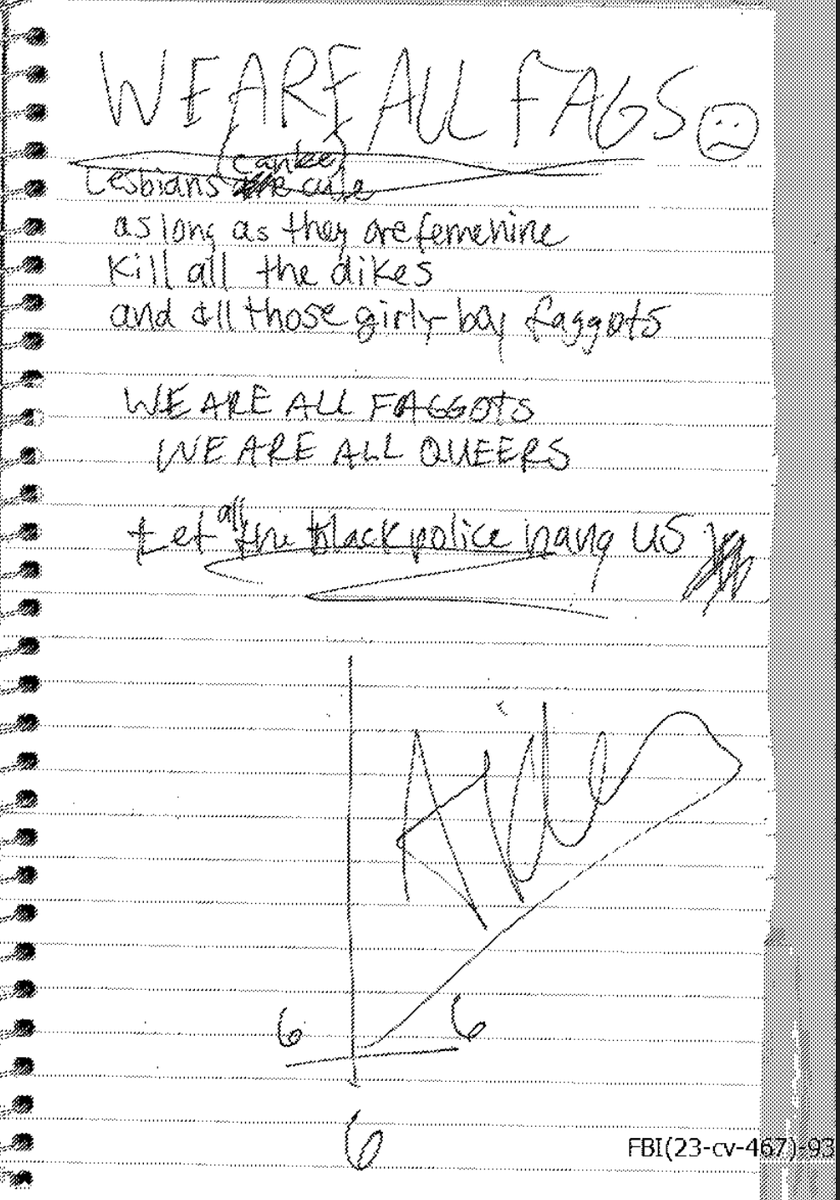 WE ARE ALL FAGS
can be
Lesbians cute
as long as they are femenine
Kill all the dikes
and all those girly boy faggots
WE ARE ALL FAGGOTS
WE ARE ALL QUEERS
Let all the black police hang us
Aiden
6 6
6
FBI(23-cv-467)-93